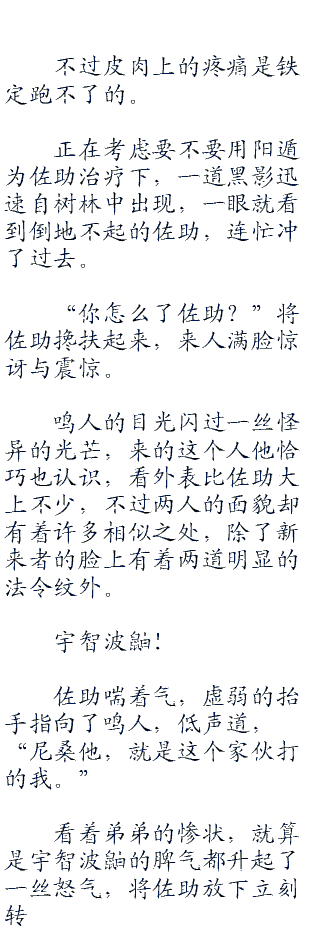 不过皮肉上的疼痛是铁
定跑不了的。
正在考虑要不要用阳遁
为佐助治疗下，一道黑影迅
速自树林中出现，一眼就看
到倒地不起的佐助，连忙冲
了过去。
“你怎么了佐助？”将
佐助搀扶起来，来人满脸惊
讶与震惊。
鸣人的目光闪过一丝怪
异的光芒，来的这个人他恰
巧也认识，看外表比佐助大
上不少，不过两人的面貌却
有着许多相似之处，除了新
来者的脸上有着两道明显的
法令纹外。
宇智波鼬！
佐助喘着气，虚弱的抬
手指向了鸣人，低声道，
“尼桑他，就是这个家伙打
的我。”
看着弟弟的惨状，就算
是宇智波鼬的脾气都升起了
一丝怒气，将佐助放下立刻
转